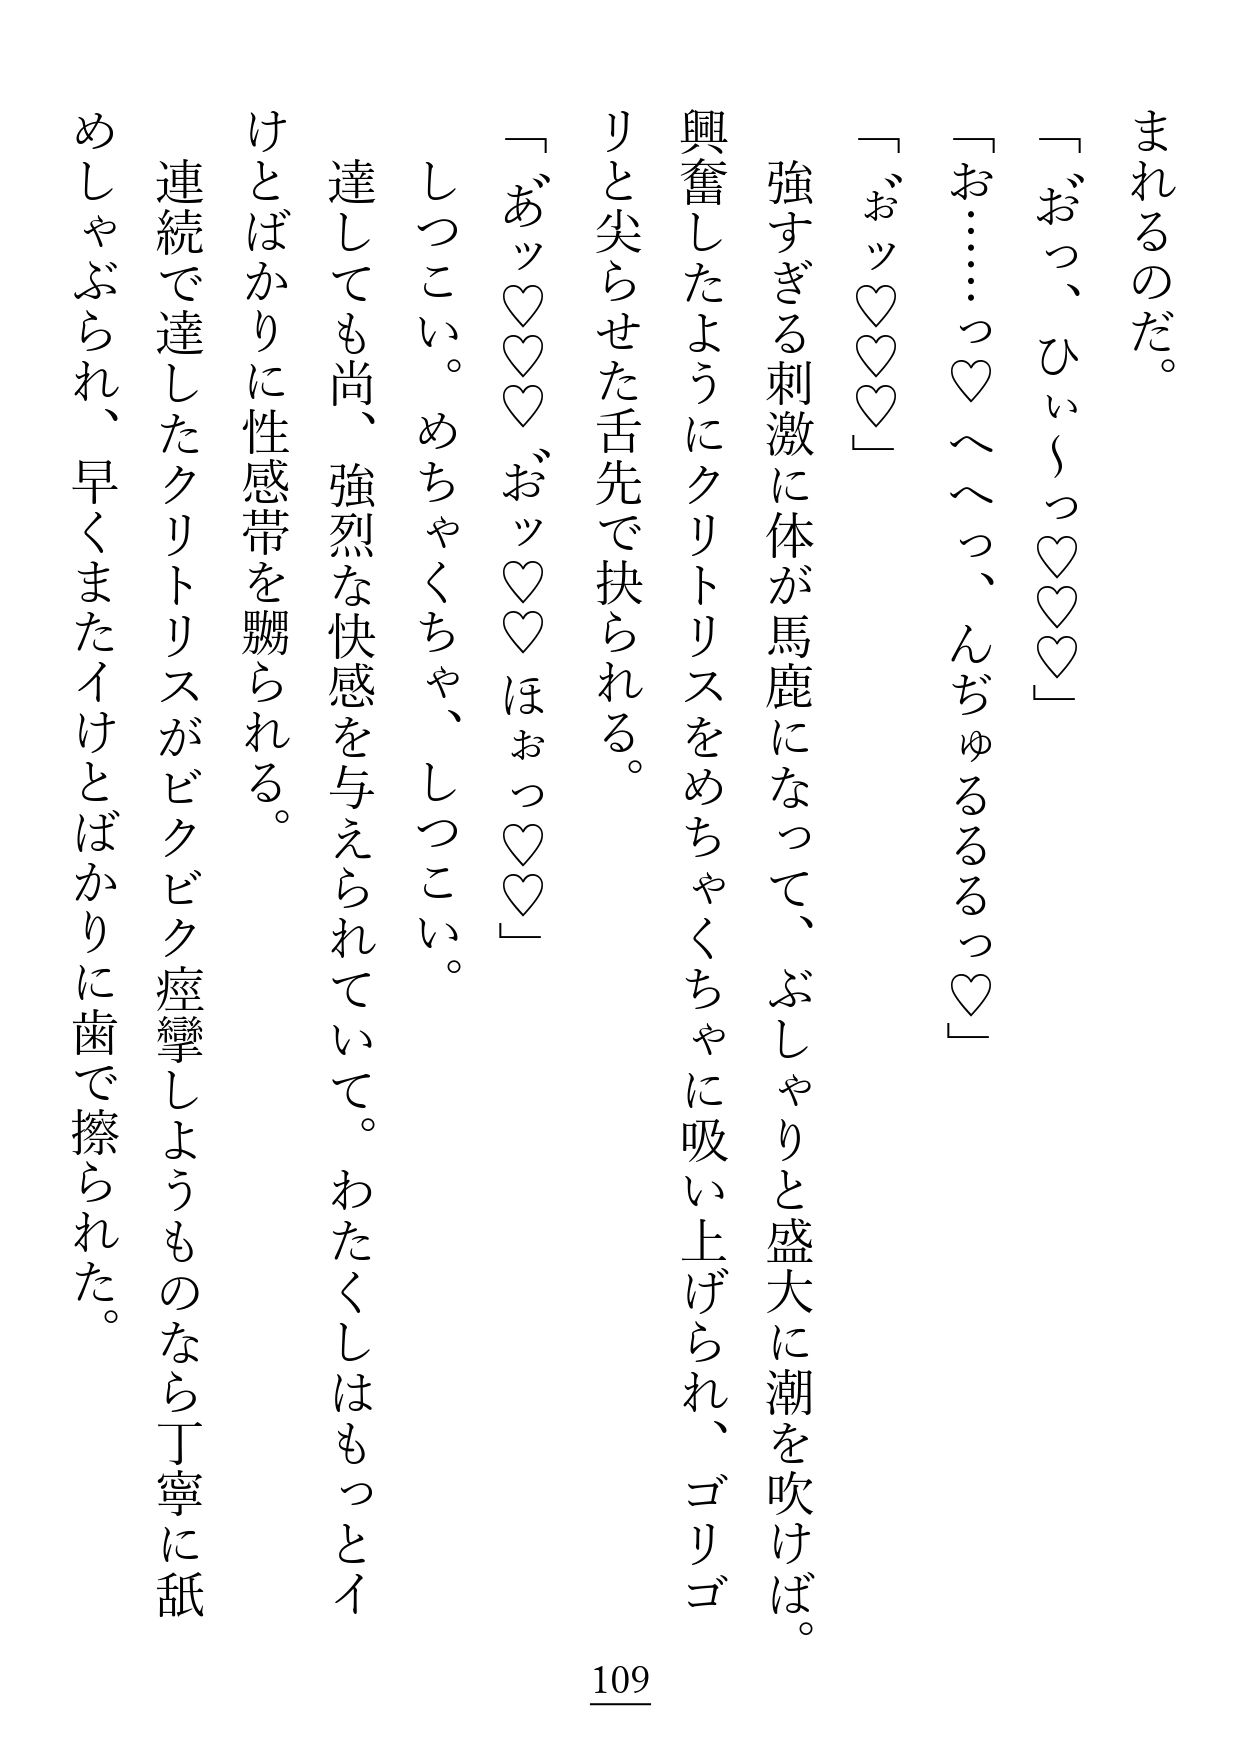 まれるのだ。
「お゛っ、ひぃ～っ♡♡♡」
「お……っ♡へへっ、んぢゅるるるっ♡」
「ぉ゛ッ♡♡♡」
強すぎる刺激に体が馬鹿になって、ぶしゃりと盛大に潮を吹けば。
興奮したようにクリトリスをめちゃくちゃに吸い上げられ、ゴリゴ
リと尖らせた舌先で抉られる。
「あ゛ッ♡♡♡お゛ッ♡♡ほぉっ♡♡」
しつこい。めちゃくちゃ、しつこい。
達しても尚、強烈な快感を与えられていて。わたくしはもっとイ
けとばかりに性感帯を嬲られる。
連続で達したクリトリスがビクビク痙攣しようものなら丁寧に舐
めしゃぶられ、早くまたイけとばかりに歯で擦られた。
109